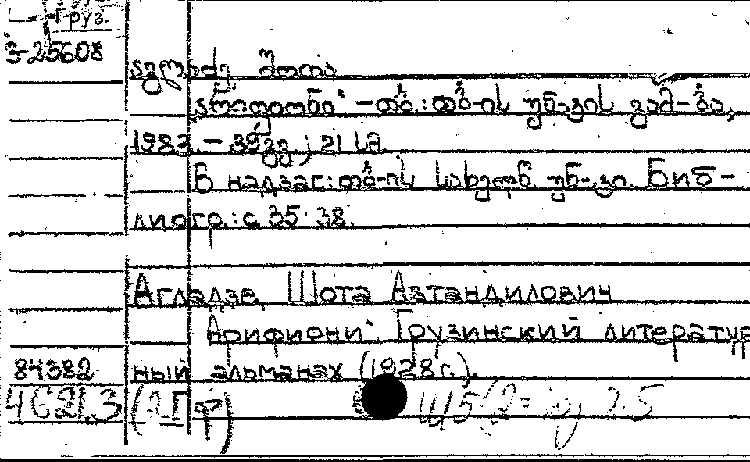 Груз.
3-25608
აგლაძე შოთა
„არიფიონი“ -თბ.: თბ-ის უნ-ტის გამ-ბა,
1983 - 39გვ.; 21 სმ.
В надзаг: თბ-ის სახელმწ. უნ-ტი. Биб-
лиогр.: с. 35-38.
Агладзе, Шота Автандилович
"Арифиони". Грузинский литератур
84382 ный альманах (1928 г.).